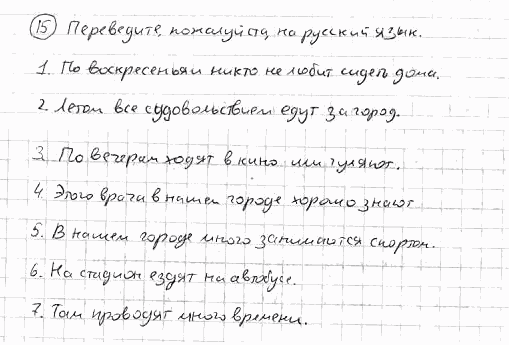 15 Переведите, пожалуйста, на русский язык.
1. По воскресеньям никто не любит сидеть дома.
2. Летом все с удовольствием едут за город.
3. По вечерам ходят в кино или гуляют.
4. Этого врача в нашем городе хорошо знают
5. В нашем городе много занимаются спортом.
6. На стадион ездят на автобусе.
7. Там проводят много времени.